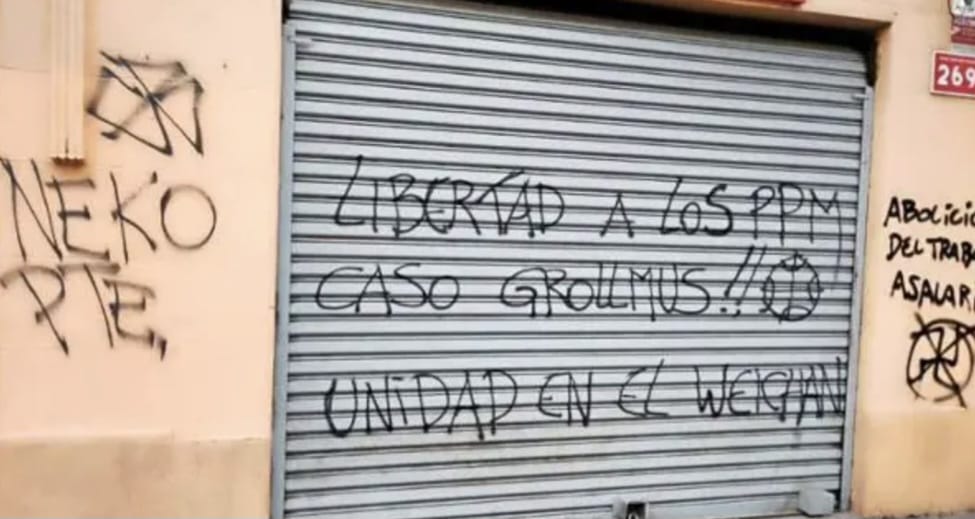 NEKO
PTE,
LIBERTAD A LOS PPM
CASO GROLLMUS!!
UNIDAD EN EL WEICHAN
269
ABOLICIO
DEL TRABA
ASALARI